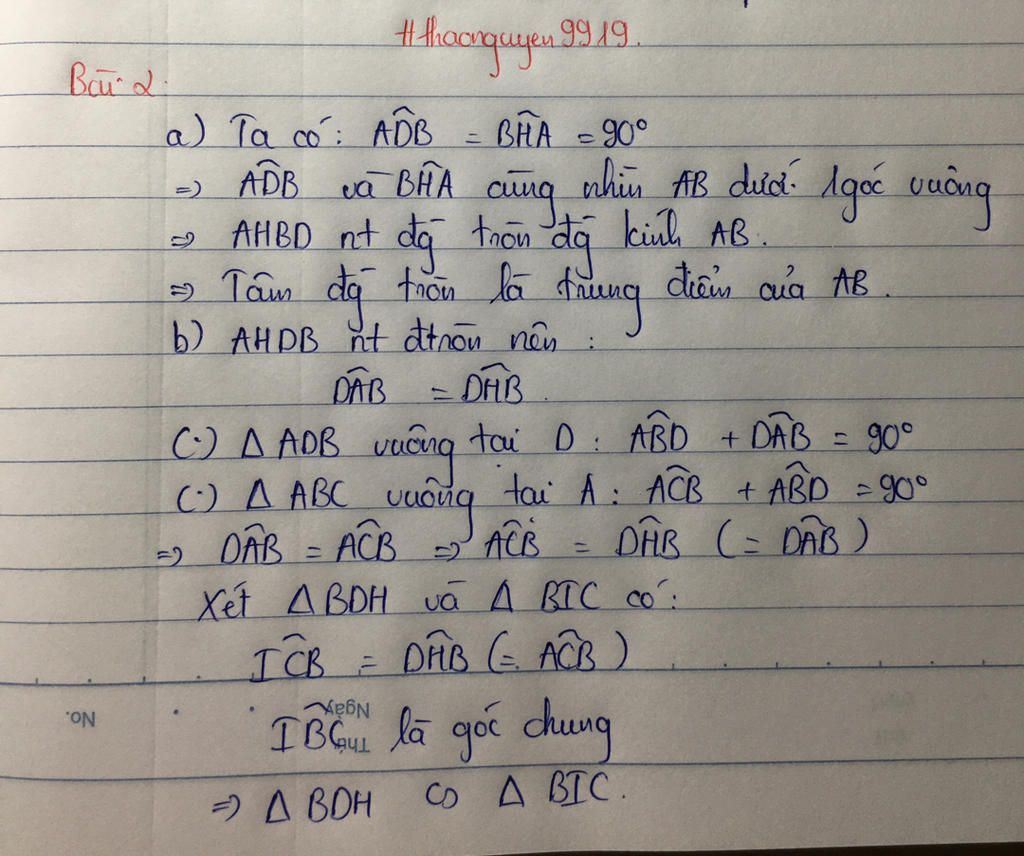 #thaonguyen9919.
Bài 2
a) Ta có: ADB̂ = BHÂ = 90°
=> ADB̂ và BHÂ cùng nhìn AB dưới 1 góc vuông
=> AHBD nt đg tròn đg kính AB.
=> Tâm đg tròn là trung điểm của AB.
b) AHDB nt đtròn nên :
DAB̂ = DHB̂.
(·) Δ ADB vuông tại D : ABD̂ + DAB̂ = 90°
(·) Δ ABC vuông tại A : ACB̂ + ABD̂ = 90°
=> DAB̂ = ACB̂ => ACB̂ = DHB̂ (= DAB̂)
Xét Δ BDH và Δ BIC có:
ICB̂ = DHB̂ (= ACB̂)
No.
Ngày
Thứ
IBĈ là góc chung
=> Δ BDH ∽ Δ BIC.